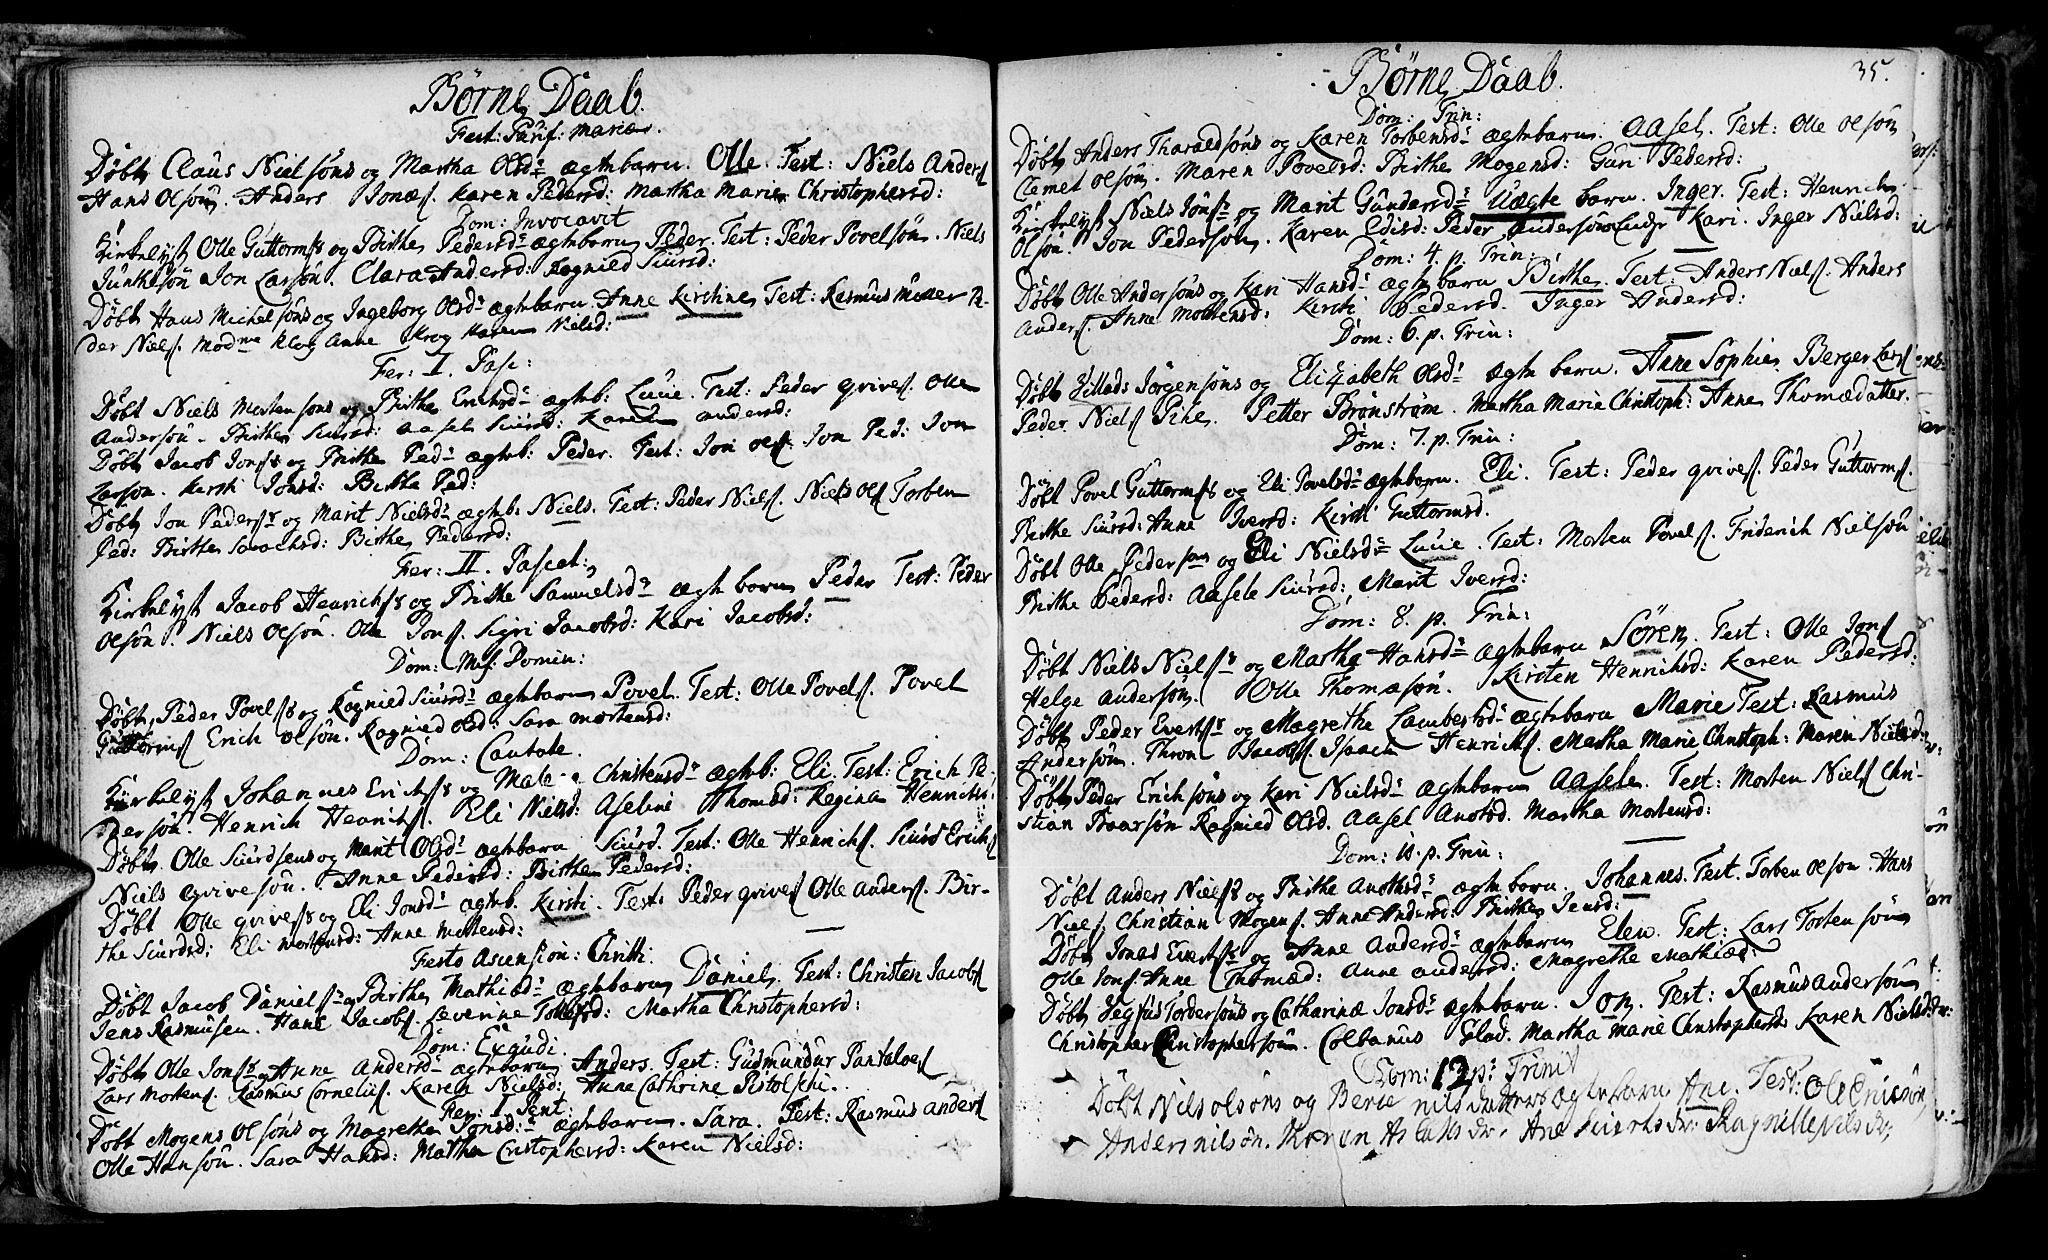 Børne Daab.
Fest: Purif: Mariæ.
Døbt Claus Nielsöns og Martha Olsdr ægtebarn. Olle. Test: Niels Anders
Hans Olsön. Anders Jonæs. Karen Pedersd: Martha Marie Christophersd:
Dom: Invocavit
Kirkelyst Olle Guttorms og Birthe Pedersdr ægtebarn Peder. Test: Peder Povelsön. Niels
Junkesön Jon Larsön. Clara Andersd: Rognied Siursd:
Døbt Hans Michelsöns og Ingeborg Olsdr ægtebarn Anne Kirstine Test: Rasmus Moller Pe-
der Niels. Mod Klog Anne Krog Karen Nielsd:
Fer: I. Pasc:
Døbt Niels Mortensöns og Birthe Erichsdr ægteb: Lucie. Test: Peder Grives. Olle
Andersön. Birthe Siursd: Aasel Siursd: Karen Andersd:
Døbt Jacob Jons og Birthe Pedr ægteb: Peder. Test: Jon Ols. Jon Ped: Jon
Larsön. Kirsti Jonsd: Birthe Ped:
Døbt Jon Peders og Marit Nielsdr ægteb: Niels. Test: Peder Niels. Niels Ols Torben
Ped: Birthe Sarachsd: Birthe Pedersd:
Fer: II. Pascat:
Kirkelyst Jacob Henrichs og Birthe Samuelsdr ægtebarn Peder Test: Peder
Olsön. Niels Olsön. Olle Jons. Sigri Jacobsd: Kari Jacobsd:
Dom: Mis: Domin:
Døbt Peder Povels og Rognied Siursdr ægtebarn Povel. Test: Olle Povels. Povel
Guttorms Erich Olsön. Rognied Olsd: Sara Mortensd:
Dom: Cantate.
Kirkelyst Johannes Erichs og Male Christensdr ægteb: Eli. Test: Erich Pe-
dersön. Henrich Henrichs. Eli Nielsd: Aseline Thomsd: Regina Henrichs:
Døbt Olle Siurdsens og Marit Olsdr ægtebarn Siurd. Test: Olle Henrichs. Siurd Erichs
Niels Grivesön. Anne Pedersd: Birthe Pedersd:
Døbt Olle Grives og Eli Jonsdr ægteb. Kirsti. Test: Peder Grives Olle Anders. Bir-
the Siurdsd: Eli Mortensd: Anne Mortensd:
Festo Ascension: Christi.
Døbt Jacob Daniels og Birthe Mathiædr ægtebarn Daniel. Test: Christen Jacobs
Jens Rasmusen. Hans Jacobs. Levenne Tollefsd: Martha Christophersd:
Dom: Exaudi.
Døbt Olle Jons og Anne Andersdr ægtebarn Anders. Test: Gudmundur Pantaloes
Lars Mortens. Rasmus Cornelius. Karen Nielsd: Anne Cathrine Pistolschi.
Fer: I. Pent:
Døbt Mogens Olsöns og Magrethe Jonsdr ægtebarn. Sara. Test: Rasmus Anders
Olle Hansön. Sara Hansd: Martha Cristophersd: Karen Nielsd:
Børne Daab.
35.
Dom: Trin:
Døbt Anders Tharaldsöns og Karen Torbensdr ægtebarn. Aasel. Test: Olle Olsön
Clemet Olsön. Maren Povelsd: Birthe Mogensd: Guri Pedersd:
Kirkelyst Niels Jöns og Marit Gundersdr Uægte barn. Inger. Test: Henrich
Olsön. Jon Pedersön. Karen Edisd: Peder Andersön Kari. Inger Nielsd:
Dom: 4. p. Trin:
Døbt Olle Andersöns og Kari Hansdr ægtebarn Birthe. Test: Anders Niels. Anders
Anders. Anne Mortensd: Kirsti Pedersd. Inger Andersd:
Dom: 6. p. Trin:
Døbt Zillads Jörgensöns og Elizabeth Olsdr ægte barn. Anne Sophie. Berger Lars
Peder Niels Pihe. Petter Brönström. Martha Marie Christoph: Anne Thomædatter.
Dom: 7. p. Trin:
Døbt Povel Guttorms og Eli Povelsdr ægtebarn. Eli. Test: Peder Grives. Peder Guttorms.
Birthe Siursd: Anne Iversd: Kirsti Guttormsd.
Døbt Olle Pedersöns og Eli Nielsdr Lucie. Test: Morten Povels. Friderich Nielsön
Birthe Pedersd: Aasele Siursd: Marit Iversd:
Dom: 8. p. Trin:
Døbt Niels Niels og Martha Hansdr ægtebarn Sören. Test: Olle Jons
Helge Andersön. Olle Thomæsön. Kirsten Henrichsd: Karen Pedersd:
Døbt Peder Everts og Magrethe Lambertsdr ægtebarn Marie Test: Rasmus
Andersön. Thron Jacobs. Isaach Henrichs. Martha Marie Christoph: Maren Nielsd:
Døbt Peder Erichsöns og Kari Nielsdr ægtebarn Aasele. Test: Morten Niels Chri-
stian Baarsön Rognied Olsd. Aasel Anotsd. Martha Mortensd:
Dom: 11. p. Trin:
Døbt Anders Niels og Birthe Anothsdr ægtebarn. Johannes. Test. Torben Olsön. Hans
Niels. Christian Mogens. Anne Andersd: Birthe Jensd:
Døbt Jonas Everts og Anne Andersdr ægtebarn Elen. Test: Lars Tostensön
Olle Jons. Anne Thomæd: Anne Andersd: Magrethe Mathiæd:
Døbt Segfus Tordersöns og Catharinæ Jonsdr ægtebarn. Jon. Test: Rasmus Andersön
Christopher Christophersön. Colbanus Glad. Martha Marie Christophersd: Karen Nielsd:
Dom: 12 p: Trinit
Døbt Nils Olsöns og Berte nils datters ægtebarn Ane. Test: Ole Ericsön,
Anders nilsön. Karen Aslaks dr. Ane Siverts dr: Ragnille Nils dr;